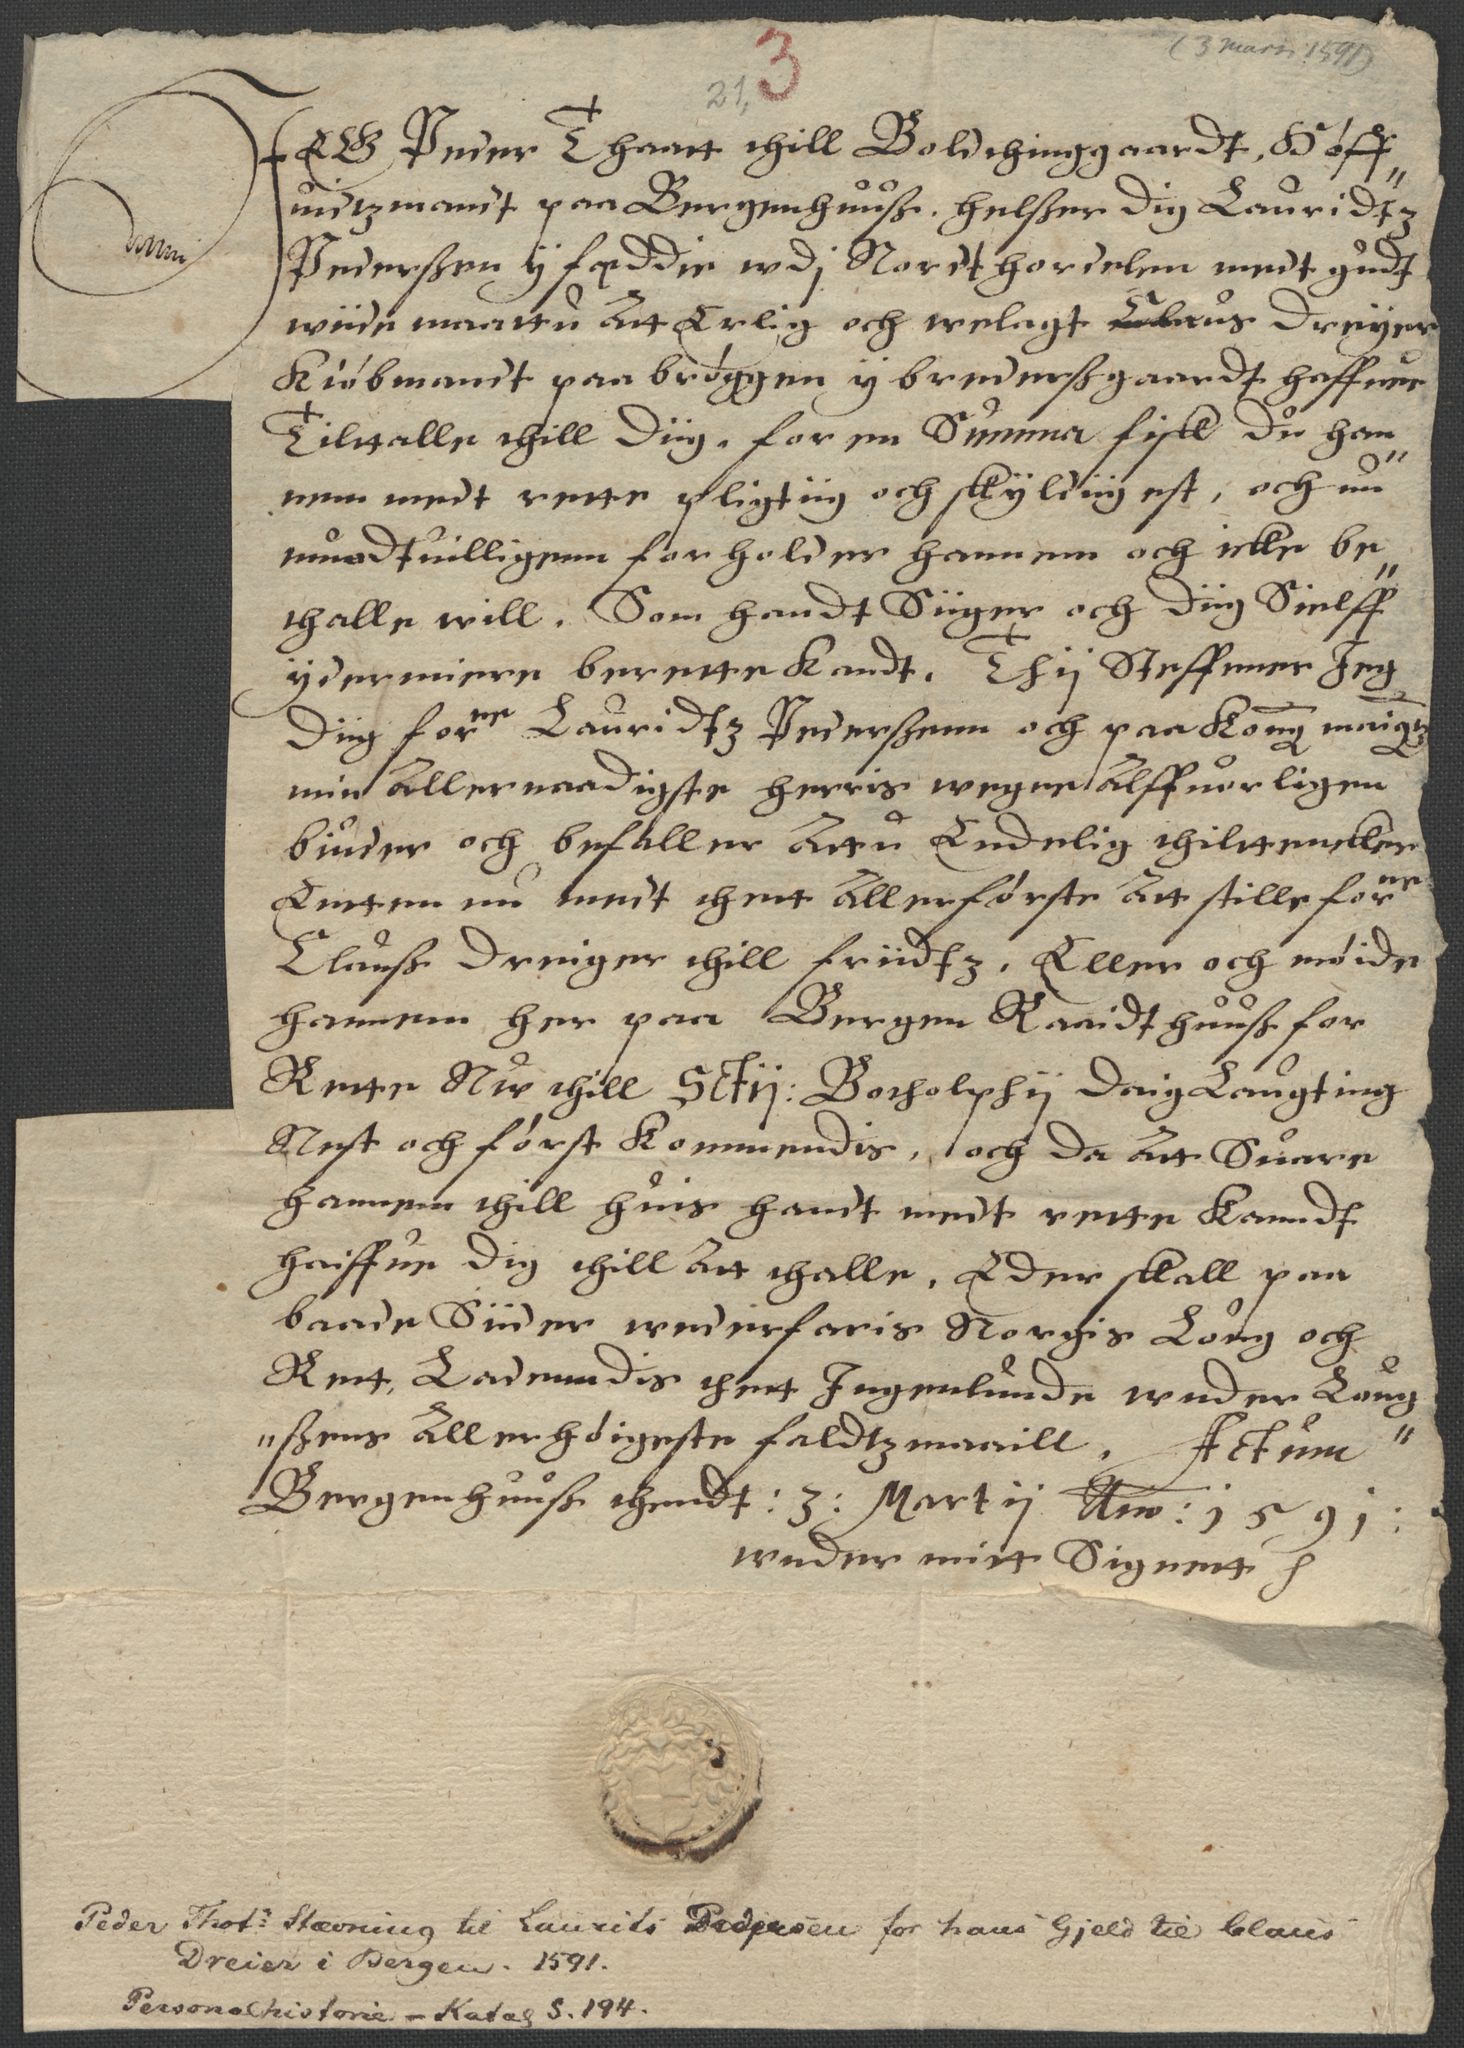 (3 marts 1591)
21, 3
JEG Peder Thaatt thill Bolthinggaardt, Høff„
uidtzmandt paa Bergenhuuß. helßer dig Lauridtz
Pederßen y fæddie wdj Nordthordelen medt gudt
wiide maattu Att Erlig och welagt Claus Dreyer
Kiøbmandt paa brøggen y brederßgaardt haffuer
Tilttalle thill diig. for en Summa fisk du han„
nem medt rette pligtiig och skyldiig est, och nu
muodtuilligenn forholder hannem och icke be„
thalle will. Som handt Siiger och diig Sielff
ydermiere berette kandt. Thij Steffuer Jeg
diig forne Lauridtz Pederßenn och paa Kong maigtz
min Allernaadigste herris wegne Alffuorligen
biuder och befaller Attu Endelig thilttencker
Entten nu medt thett Allerførste Att stille forne
Clauß Dreiger thill friidtz. Eller och møide
hannem her paa Bergen Raaidthuuß for
Rette Nw thill SCtij: Botholphij daig Laugting
Nest och først kommendis, och da Att Suare
hannem thill huis handt medt rette kanndt
haiffue dig thill Att thalle. Eder skall paa
baade Siider wederfaris Norgis Loug och
Rett, Ladenndis thett Ingenlunde wnder Loug
„ßens Allerhøigeste faldtzmaaill. Actum„
Bergenhuuß thendt: 3: Martij Ano: 1591:
wnder mitt Signett
Peder Thots Stævning til Laurits Pedersen for hans Gjeld til Claus
Dreier i Bergen. 1591.
Personalhistorie - Katal S. 194.